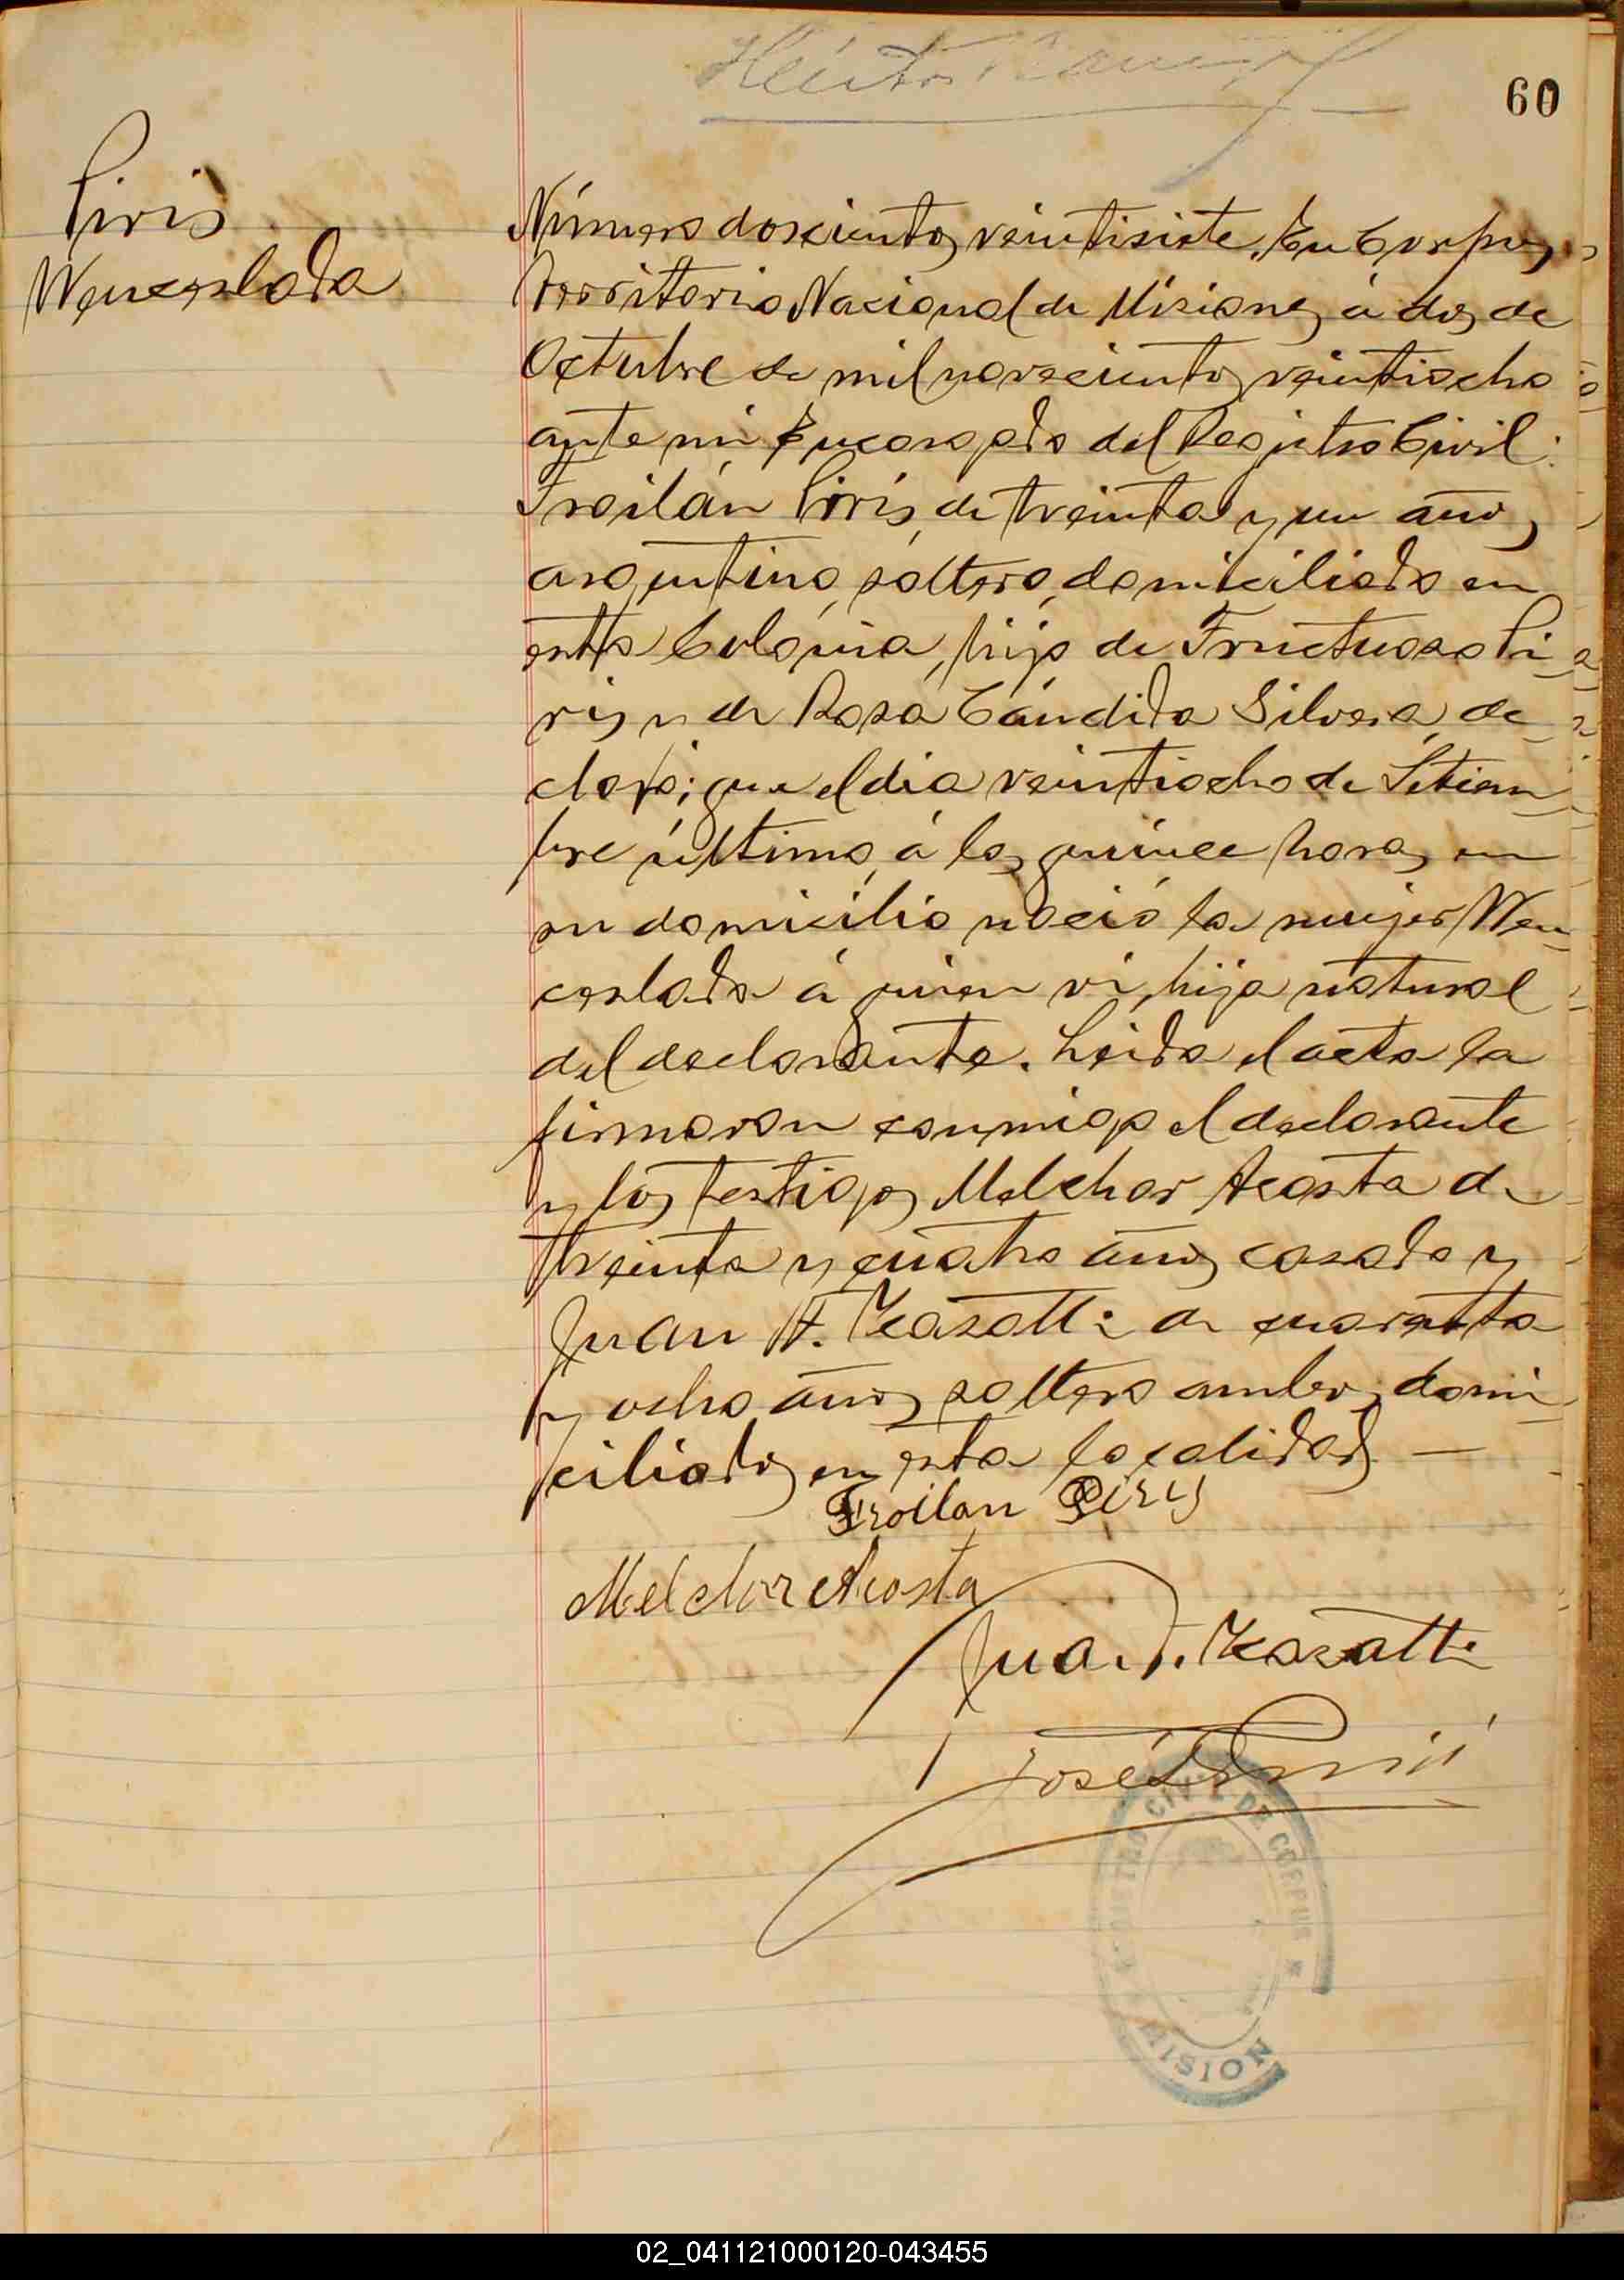 60
Piris
Wenceslada
Número doscientos veintisiete. En Corpus,
Territorio Nacional de Misiones, á dos de
Octubre de mil novecientos veintiocho
ante mi Encargado del Registro Civil:
Froilán Piris, de treinta y un años,
argentino, soltero, domiciliado en
esta Colonia, hijo de Fructuoso Pi
ris y de Rosa Cándida Silvera, de
claró; que el dia veintiocho de Setiem
bre último, á las quince horas, en
su domicilio nació la mujer Wen
ceslada á quien vi, hija natural
del declarante. Leida el acta la
firmaron conmigo el declarante
y los testigos Melchor Acosta de
treinta y cuatro años casado y
Juan F. Kasatti de cuarenta
y ocho años soltero ambos domi
ciliados en esta localidad —
Froilan Piris
Melchor Acosta
Juan F. Kasatti
José
REGISTRO CIVIL DE CORPUS
MISION
02_041121000120-043455